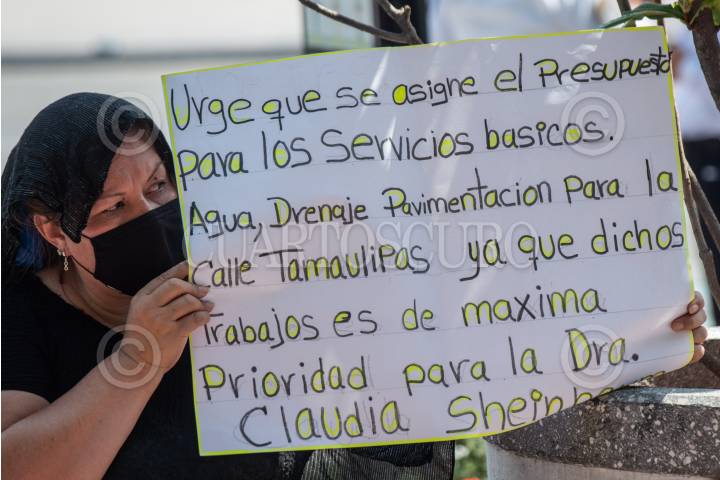 Urge que se asigne el Presupuesto
para los Servicios basicos.
Agua, Drenaje Pavimentacion para la
Calle Tamaulipas ya que dichos
Trabajos es de maxima
Prioridad para la Dra.
Claudia Shein
CUARTOSCURO